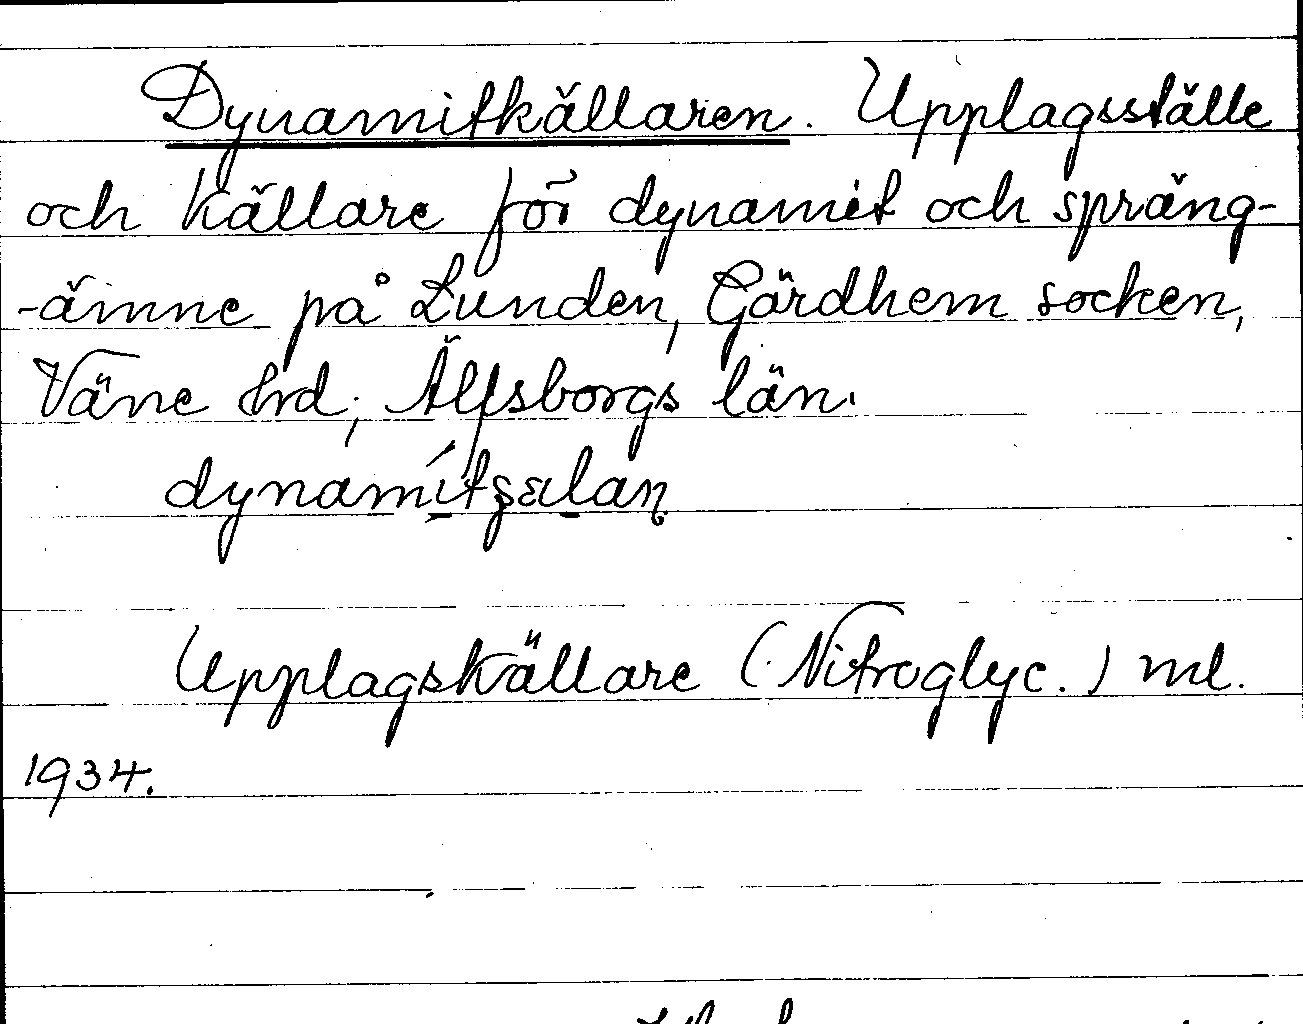 Dynamitkällaren. Upplagsställe
och källare för dynamit och spräng-
-ämne på Lunden, Gärdhem socken,
Väne hrd, Älfsborgs län.
Upplagskällare (Nitroglyc.) ml.
1934.